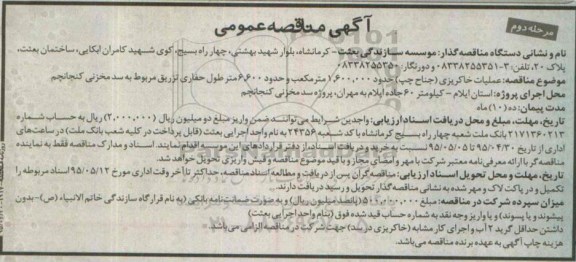 آگهی مناقصه عمومی
مرحله دوم
نام و نشانی دستگاه مناقصه گذار: موسسه سازندگی بعثت - کرمانشاه، بلوار شهید بهشتی، چهار راه بسیج، کوی شهید کامران ابکایی، ساختمان بعثت،
پلاک ۲۰، تلفن: ۳-۰۸۳۳۸۲۵۵۳۵۱ و دورنگار: ۰۸۳۳۸۲۵۵۳۵۰
موضوع مناقصه: عملیات خاکریزی (جناح چپ) حدود ۱,۶۰۰,۰۰۰ مترمکعب و حدود ۶,۶۰۰ متر طول حفاری تزریق مربوط به سد مخزنی کنجانچم
محل اجرای پروژه: استان ایلام - کیلومتر ۶۰ جاده ایلام به مهران، پروژه سد مخزنی کنجانچم
مدت پیمان: ده (۱۰) ماه
تاریخ، مهلت، مبلغ و محل دریافت اسناد ارزیابی: واجدین شرایط می توانند ضمن واریز مبلغ دو میلیون ریال (۲,۰۰۰,۰۰۰) ریال به حساب شماره
۲۱۷۱۳۶۰۲۱۳ بانک ملت شعبه چهار راه بسیج کرمانشاه با کد شعبه ۲۴۳۵۶ به نام واحد اجرایی بعثت (قابل پرداخت در کلیه شعب بانک ملت) در ساعت های
اداری از تاریخ ۹۵/۰۴/۳۰ تا ۹۵/۰۵/۰۵ نسبت به خرید و دریافت اسناد، از دفتر قراردادهای این موسسه اقدام نمایند. اسناد و مدارک مناقصه فقط به نماینده
مناقصه گر با ارائه معرفی نامه معتبر شرکت با مهر و امضای مجاز و با قید موضوع مناقصه و فیش واریزی تحویل خواهد شد.
تاریخ، مهلت و محل تحویل اسناد ارزیابی: مناقصه گران پس از دریافت و مطالعه اسناد مناقصه، حداکثر تا آخر وقت اداری مورخ ۹۵/۰۵/۱۲ اسناد مربوطه را
تکمیل و در پاکت لاک و مهر شده به نشانی مناقصه گذار تحویل و رسید دریافت دارند.
میزان سپرده شرکت در مناقصه: مبلغ ۵۰۰,۰۰۰,۰۰۰ (پانصد میلیون ریال) و به صورت ضمانت نامه بانکی (به نام قرارگاه سازندگی خاتم الانبیاء (ص) - بدون
پیشوند و یا پسوند) و یا واریز وجه نقد به شماره حساب قید شده فوق (بنام واحد اجرایی بعثت)
داشتن حداقل گرید ۲ آب و اجرای کار مشابه (خاکریزی در سد) جهت شرکت در مناقصه الزامی می باشد.
هزینه چاپ آگهی به عهده برنده مناقصه می باشد.